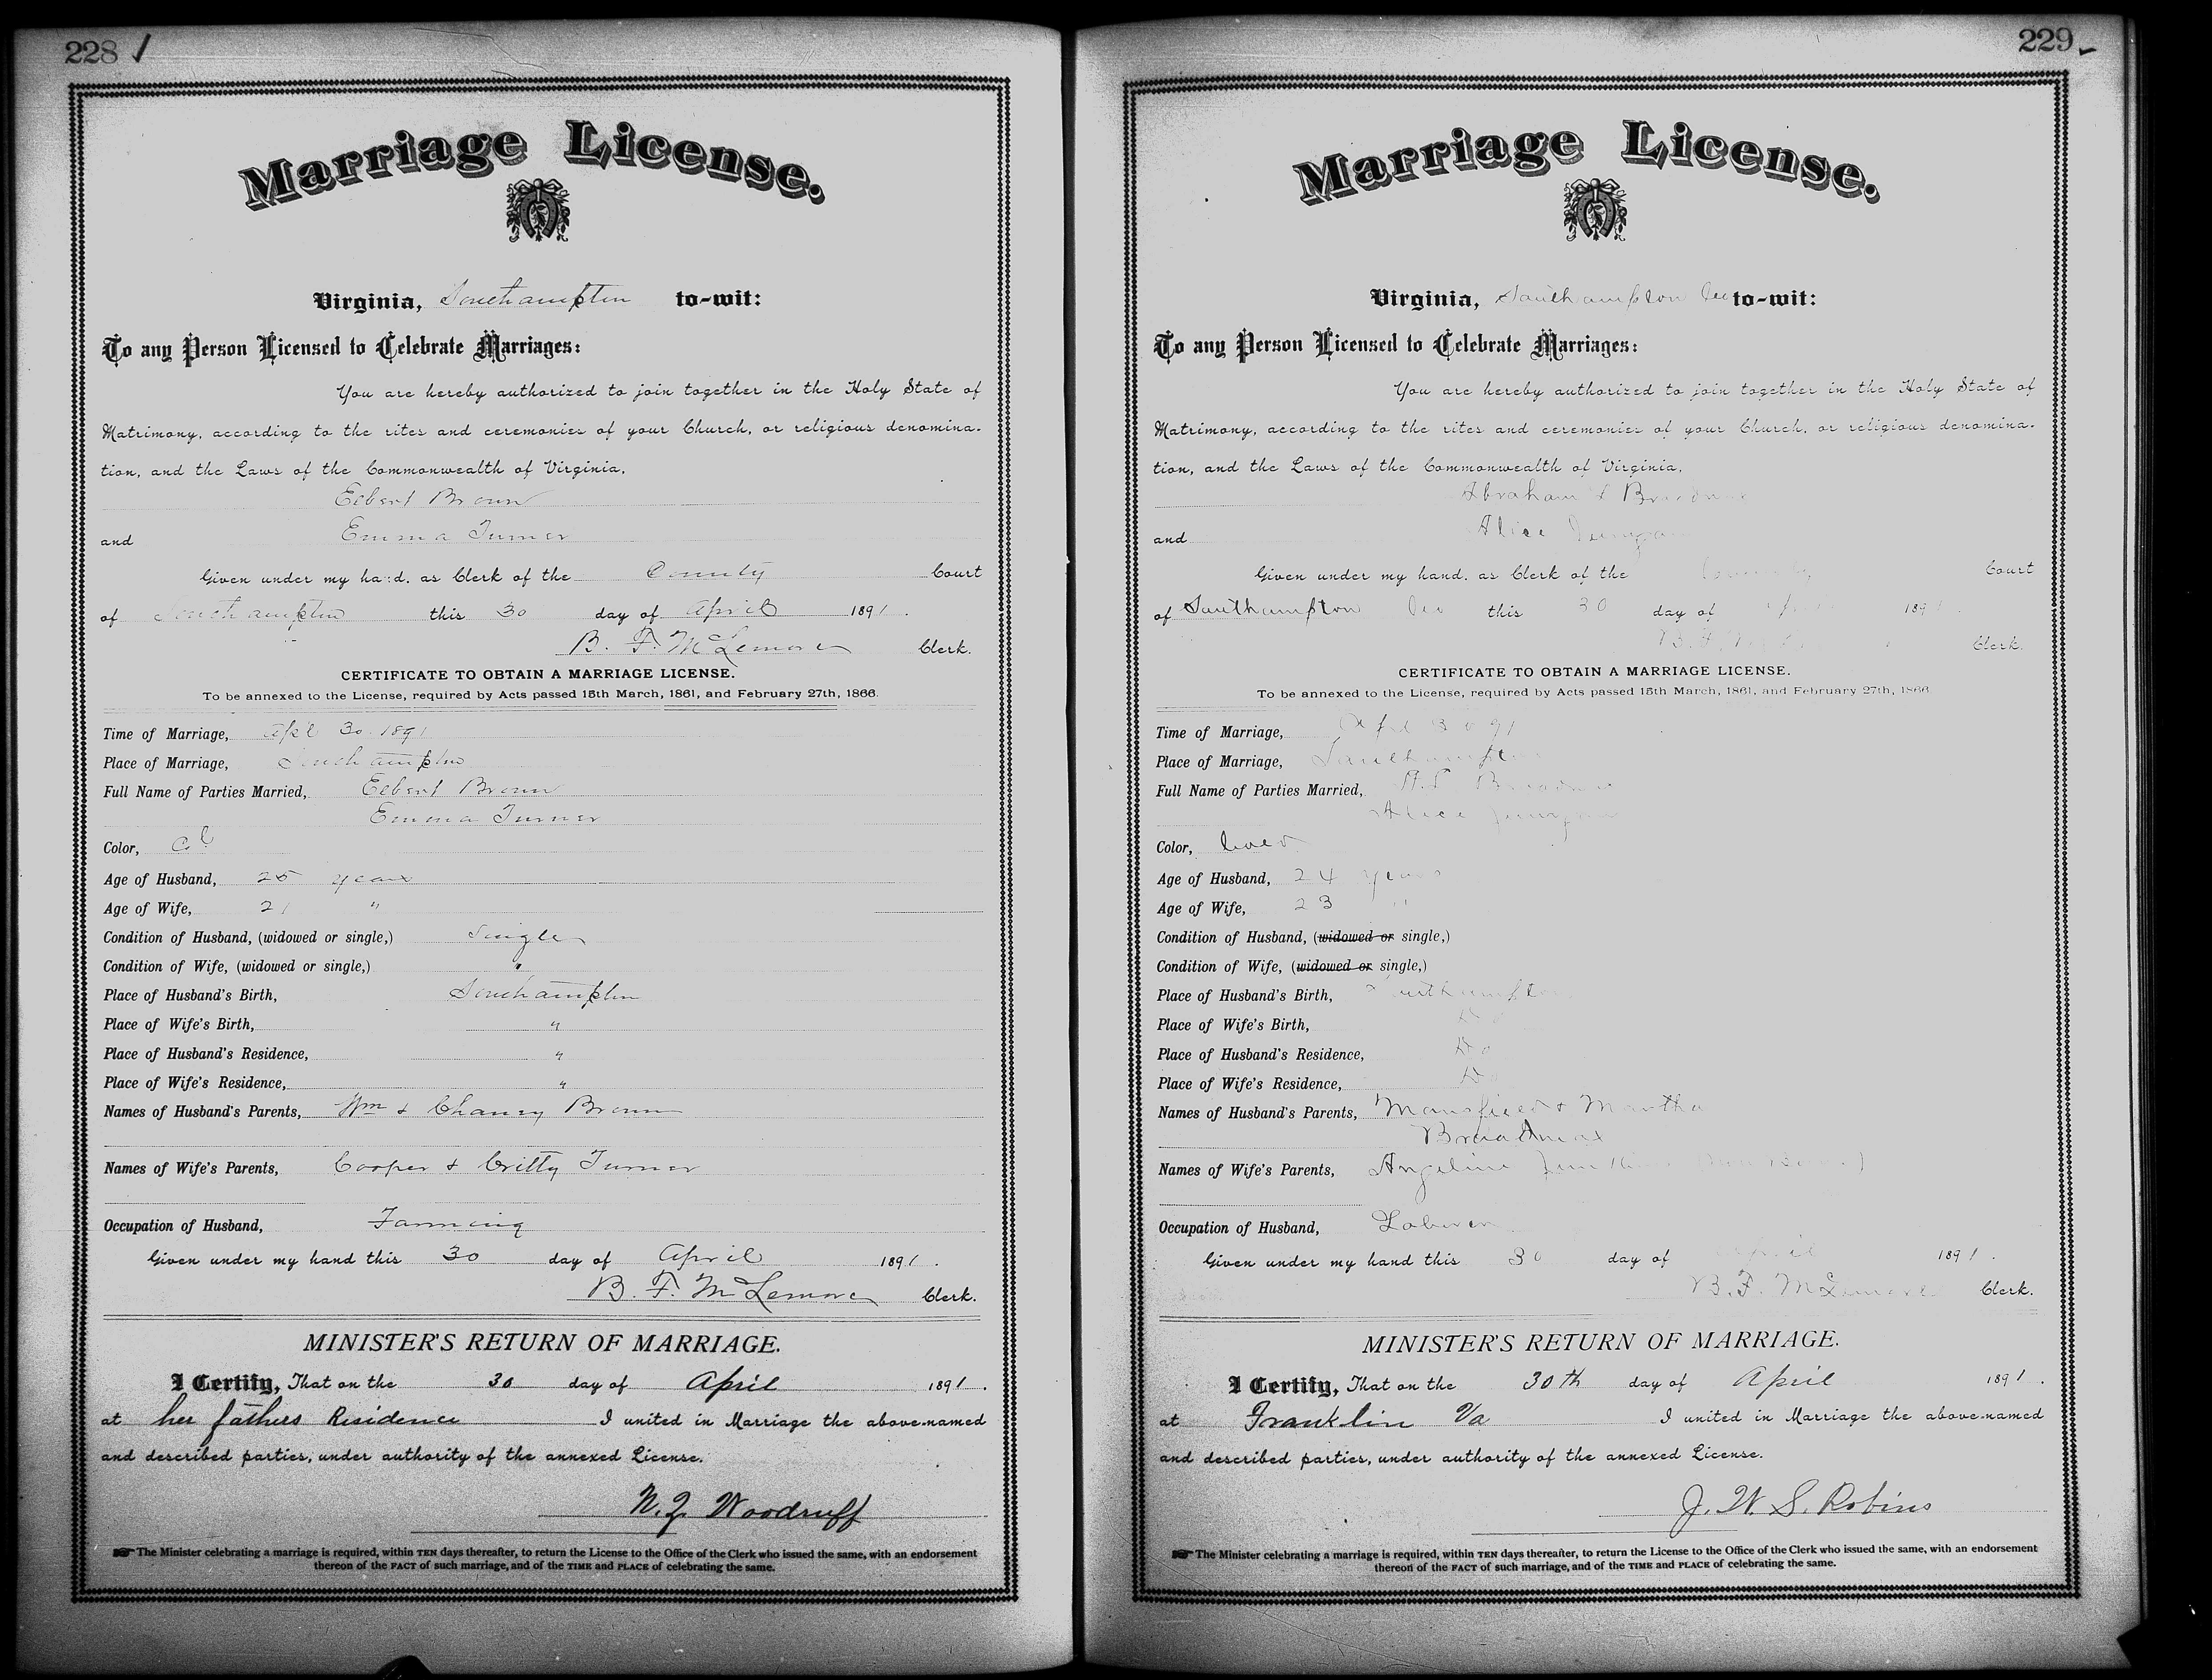 228
Marriage License.
Virginia, Southampton to-wit:
To any Person Licensed to Celebrate Marriages:
You are hereby authorized to join together in the Holy State of
Matrimony, according to the rites and ceremonies of your Church, or religious denomina-
tion, and the Laws of the Commonwealth of Virginia,
Elbert Brown
and Emma Turner
Given under my hand, as Clerk of the County Court
of Southampton this 30 day of April 1891.
B. F. McLemore Clerk.
CERTIFICATE TO OBTAIN A MARRIAGE LICENSE.
To be annexed to the License, required by Acts passed 15th March, 1861, and February 27th, 1866.
Time of Marriage, Apl 30 1891
Place of Marriage, Southampton
Full Name of Parties Married, Elbert Brown
Emma Turner
Color, Col
Age of Husband, 25 years
Age of Wife, 21 "
Condition of Husband, (widowed or single,) Single
Condition of Wife, (widowed or single,) "
Place of Husband's Birth, Southampton
Place of Wife's Birth, "
Place of Husband's Residence, "
Place of Wife's Residence, "
Names of Husband's Parents, Wm & Chancy Brown
Names of Wife's Parents, Cooper & Critty Turner
Occupation of Husband, Farming
Given under my hand this 30 day of April 1891.
B. F. McLemore Clerk.
MINISTER'S RETURN OF MARRIAGE.
I Certify, That on the 30 day of April 1891.
at her fathers Residence I united in Marriage the above-named
and described parties, under authority of the annexed License.
N. Z. Woodruff
The Minister celebrating a marriage is required, within TEN days thereafter, to return the License to the Office of the Clerk who issued the same, with an endorsement
thereon of the FACT of such marriage, and of the TIME and PLACE of celebrating the same.
229
Marriage License.
Virginia, Southampton Co to-wit:
To any Person Licensed to Celebrate Marriages:
You are hereby authorized to join together in the Holy State of
Matrimony, according to the rites and ceremonies of your Church, or religious denomina-
tion, and the Laws of the Commonwealth of Virginia,
Abraham Broadnax
and Alice
Given under my hand, as Clerk of the County Court
of Southampton Co this 30 day of April 1891.
B. F. Clerk.
CERTIFICATE TO OBTAIN A MARRIAGE LICENSE.
To be annexed to the License, required by Acts passed 15th March, 1861, and February 27th, 1866
Time of Marriage, Apl 30 91
Place of Marriage, Southampton
Full Name of Parties Married, Broadnax
Alice
Color, Cold
Age of Husband, 24 years
Age of Wife, 23 "
Condition of Husband, (widowed or single,)
Condition of Wife, (widowed or single,)
Place of Husband's Birth, Southampton
Place of Wife's Birth, Do
Place of Husband's Residence, Do
Place of Wife's Residence, Do
Names of Husband's Parents, Mansfield & Martha
Broadnax
Names of Wife's Parents, Angeline
Occupation of Husband, Laborer
Given under my hand this 30 day of April 1891.
B. F. McLemore Clerk.
MINISTER'S RETURN OF MARRIAGE.
I Certify, That on the 30th day of April 1891.
at Franklin Va I united in Marriage the above-named
and described parties, under authority of the annexed License.
J. W. S. Robins
The Minister celebrating a marriage is required, within TEN days thereafter, to return the License to the Office of the Clerk who issued the same, with an endorsement
thereon of the FACT of such marriage, and of the TIME and PLACE of celebrating the same.